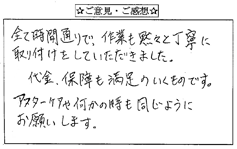 ☆ご意見・ご感想☆
全て時間通りで、作業も黙々と丁寧に
取り付けをしていただきました。
代金、保障も満足のいくものです。
アフターケアや何かの時も同じように
お願いします。